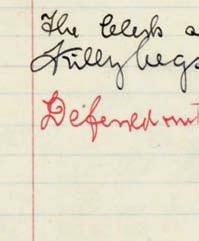 The Clerk a
Killybegs
Defendant